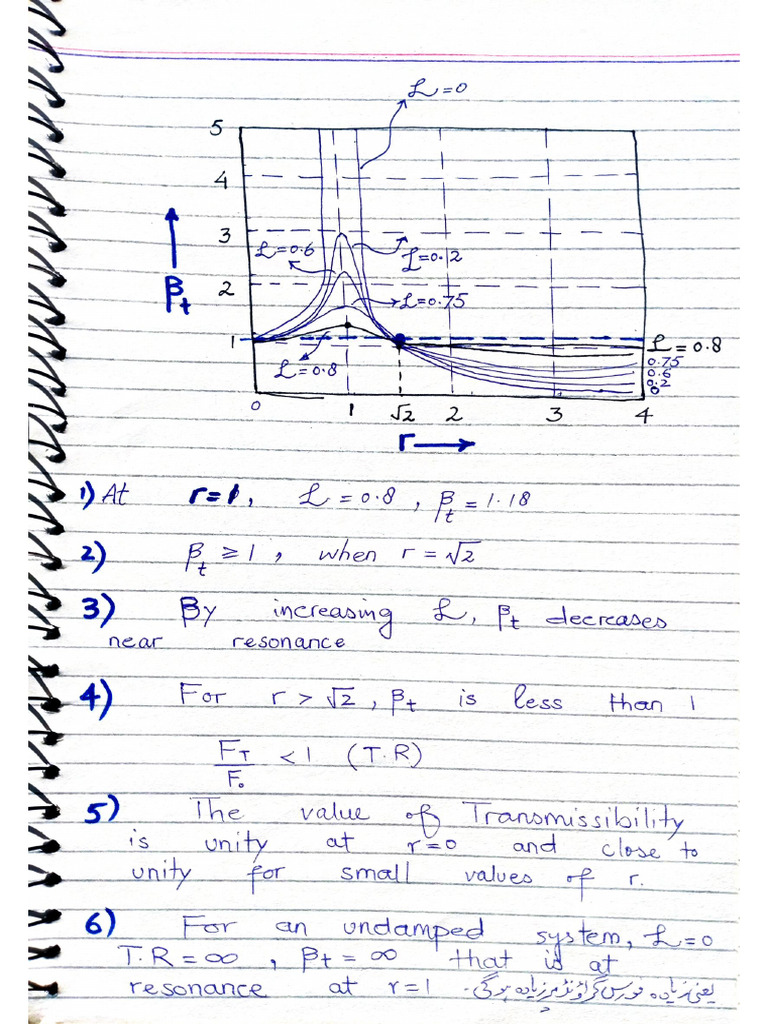 ℒ=0
5
4
3
ℒ=0.6
ℒ=0.2
βt
2
ℒ=0.75
1
ℒ=0.8
ℒ=0.8
0.75
0.6
0.2
0
0 1 √2 2 3 4
r
1) At r=1, ℒ=0.8, βt=1.18
2) βt ≥ 1, when r = √2
3) By increasing ℒ, βt decreases
near resonance
4) For r > √2, βt is less than 1
FT/F₀ < 1 (T.R)
5) The value of Transmissibility
is unity at r=0 and close to
unity for small values of r.
6) For an undamped system, ℒ=0
T.R = ∞, βt = ∞ that is at
resonance at r=1 یعنی زیادہ فورس گراؤنڈ پر زیادہ ہوگی۔